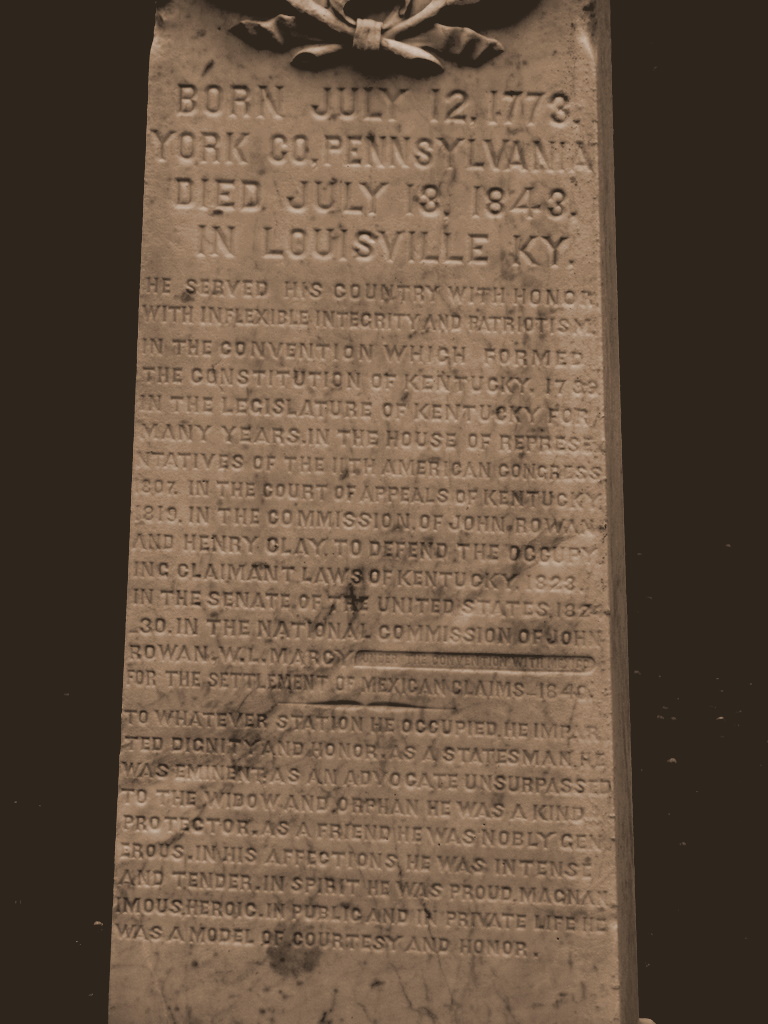 BORN JULY 12, 1773.
YORK CO, PENNSYLVANIA
DIED, JULY 13, 1843.
IN LOUISVILLE KY.
HE SERVED HIS COUNTRY WITH HONOR,
WITH INFLEXIBLE INTEGRITY AND PATRIOTISM.
IN THE CONVENTION WHICH FORMED
THE CONSTITUTION OF KENTUCKY. 1799
IN THE LEGISLATURE OF KENTUCKY FOR
MANY YEARS. IN THE HOUSE OF REPRESE-
NTATIVES OF THE 11TH AMERICAN CONGRESS
1807. IN THE COURT OF APPEALS OF KENTUCKY
1819. IN THE COMMISSION, OF JOHN ROWAN
AND HENRY CLAY, TO DEFEND THE OCCUPY-
ING CLAIMANT LAWS OF KENTUCKY, 1823.
IN THE SENATE, OF THE UNITED STATES, 1824
_30. IN THE NATIONAL COMMISSION OF JOHN
ROWAN. W. L. MARCY (UNDER THE CONVENTION WITH MEXICO)
FOR THE SETTLEMENT OF MEXICAN CLAIMS_1840.
TO WHATEVER STATION HE OCCUPIED, HE IMPAR
TED DIGNITY AND HONOR. AS A STATESMAN, HE
WAS EMINENT. AS AN ADVOCATE UNSURPASSED
TO THE WIDOW, AND ORPHAN HE WAS A KIND
PROTECTOR. AS A FRIEND HE WAS NOBLY GEN
EROUS. IN HIS AFFECTIONS, HE WAS INTENSE
AND TENDER. IN SPIRIT HE WAS PROUD, MAGNAN
IMOUS, HEROIC. IN PUBLIC AND IN PRIVATE LIFE HE
WAS A MODEL OF COURTESY AND HONOR.